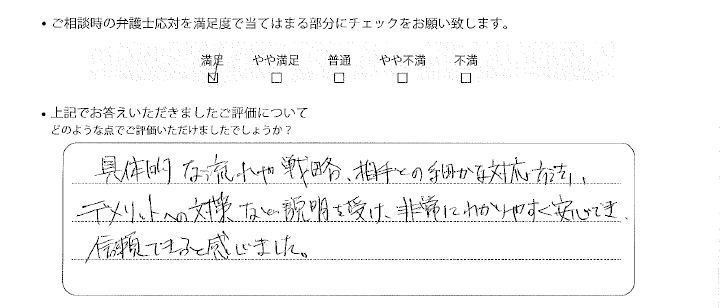 • ご相談時の弁護士応対を満足度で当てはまる部分にチェックをお願い致します。
満足 やや満足 普通 やや不満 不満
• 上記でお答えいただきましたご評価について
どのような点でご評価いただけましたでしょうか？
具体的な流れや戦略、相手との細かな対応方法、
デメリットへの対策などの説明を受け、非常にわかりやすく安心でき、
信頼できると感じました。